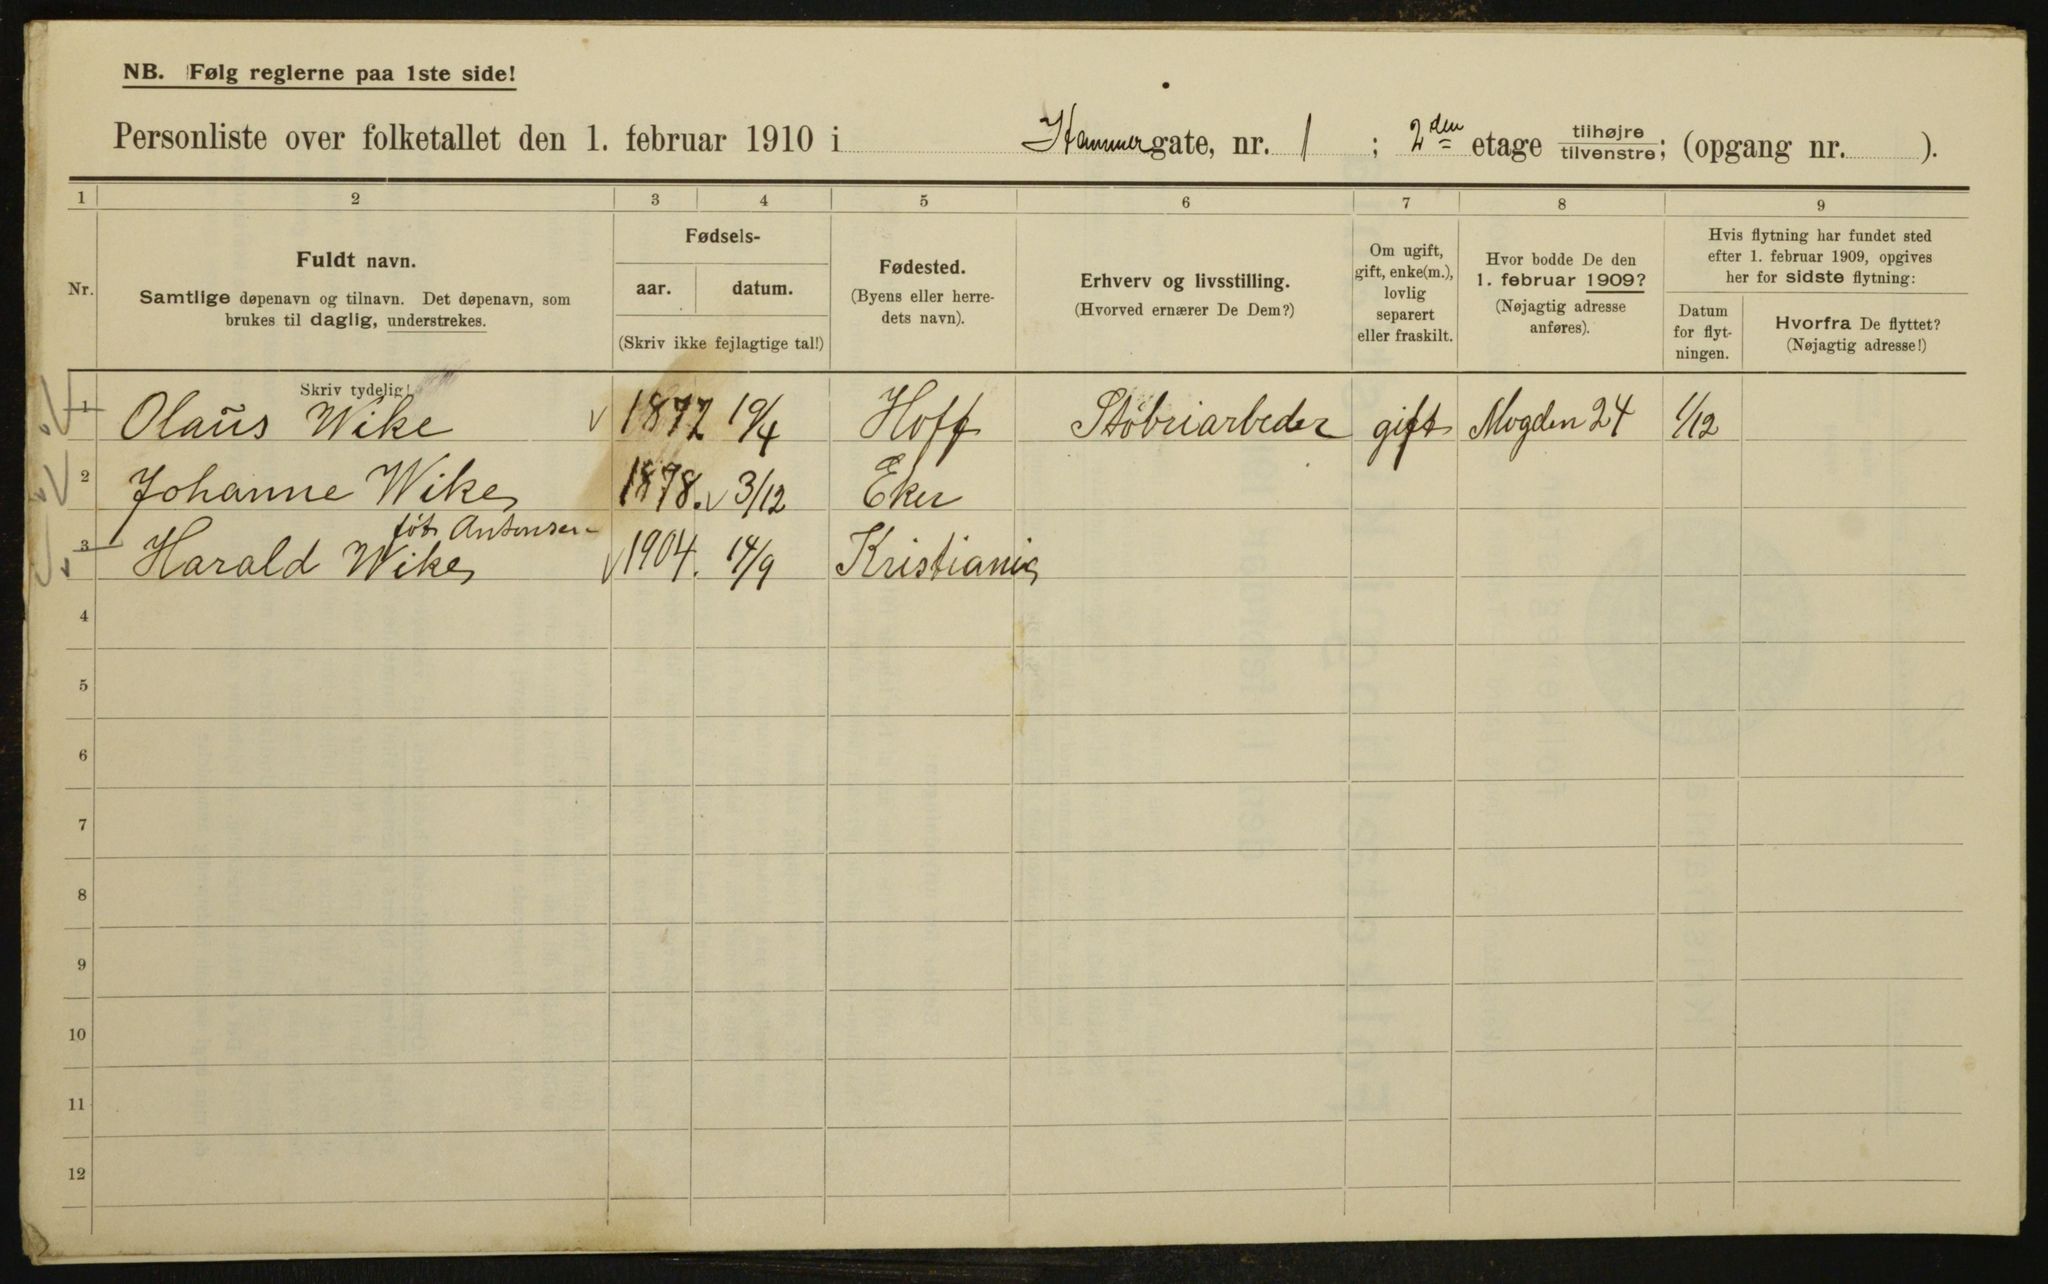 NB. Følg reglerne paa 1ste side!
Personliste over folketallet den 1. februar 1910 i Hammergate, nr. 1 ; 2den etage tilhøjre/tilvenstre; (opgang nr. ).
1 2 3 4 5 6 7 8 9
Nr.
Fuldt navn.
Samtlige døpenavn og tilnavn. Det døpenavn, som
brukes til daglig, understrekes.
Fødsels-
aar. datum.
(Skriv ikke fejlagtige tal!)
Fødested.
(Byens eller herre-
dets navn).
Erhverv og livsstilling.
(Hvorved ernærer De Dem?)
Om ugift,
gift, enke(m.),
lovlig
separert
eller fraskilt.
Hvor bodde De den
1. februar 1909?
(Nøjagtig adresse
anføres).
Hvis flytning har fundet sted
efter 1. februar 1909, opgives
her for sidste flytning:
Datum
for flyt-
ningen.
Hvorfra De flyttet?
(Nøjagtig adresse!)
Skriv tydelig!
1 Olaŭs Wike 1877 19/4 Hoff Støberiarbeder gift Mogden 24 1/12
2 Johanne Wike 1878. 3/12 Eker
født Antonsen
3 Harald Wike 1904. 14/9 Kristiania
4
5
6
7
8
9
10
11
12